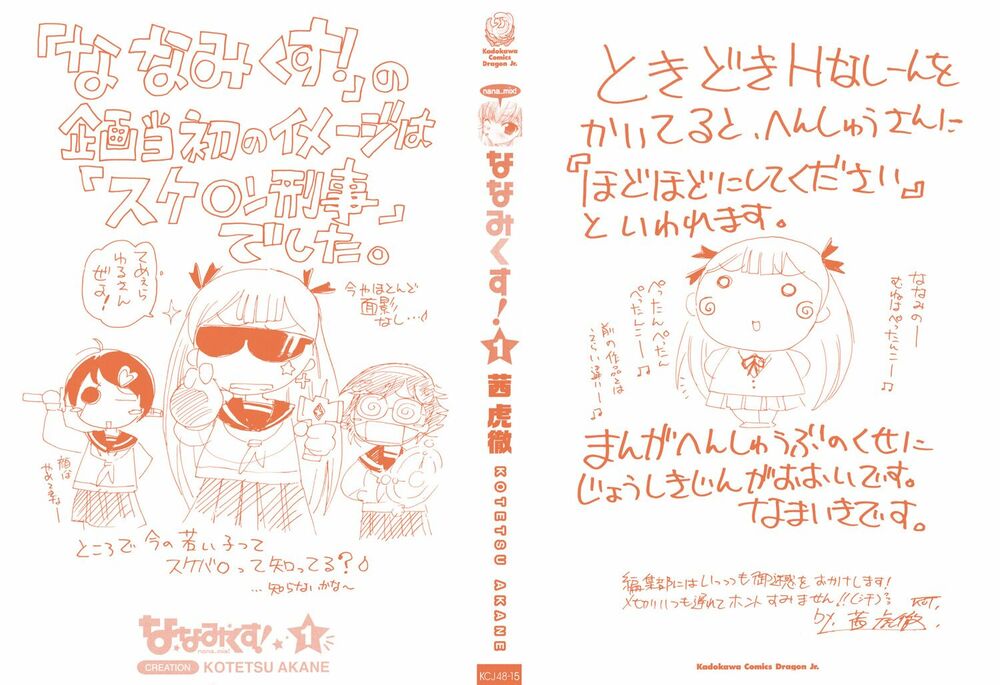 「ななみくす!」の
企画当初のイメージは
「スケ〇ン刑事」
でした。
てめぇら
ゆるさん
ぜよ!
今やほとんど
面影
なし…♪
顔は
やめてねー
ところで今の若い子って
スケバ〇って知ってる?♪
…知らないかな〜
ななみくす!
nana_mix!
1
CREATION
KOTETSU AKANE
Kadokawa
Comics
Dragon Jr.
nana_mix!
ななみくす!
1
茜虎徹
KOTETSU AKANE
KCJ48-15
ときどきHなしーんを
かいてると、へんしゅうさんに
『ほどほどにしてください』
といわれます。
ななみのー
むねはぺったんこー♪
ぺったんぺったん
ぺったんこー♪
前の作品とは
えらい違いー♪
まんがへんしゅうぶのくせに
じょうしきじんがおおいです。
なまいきです。
編集部にはいっつも御迷惑をおかけします!
〆切りいつも遅れてホントすみません!!(汗)
by.茜虎徹.
KOT.
Kadokawa Comics Dragon Jr.